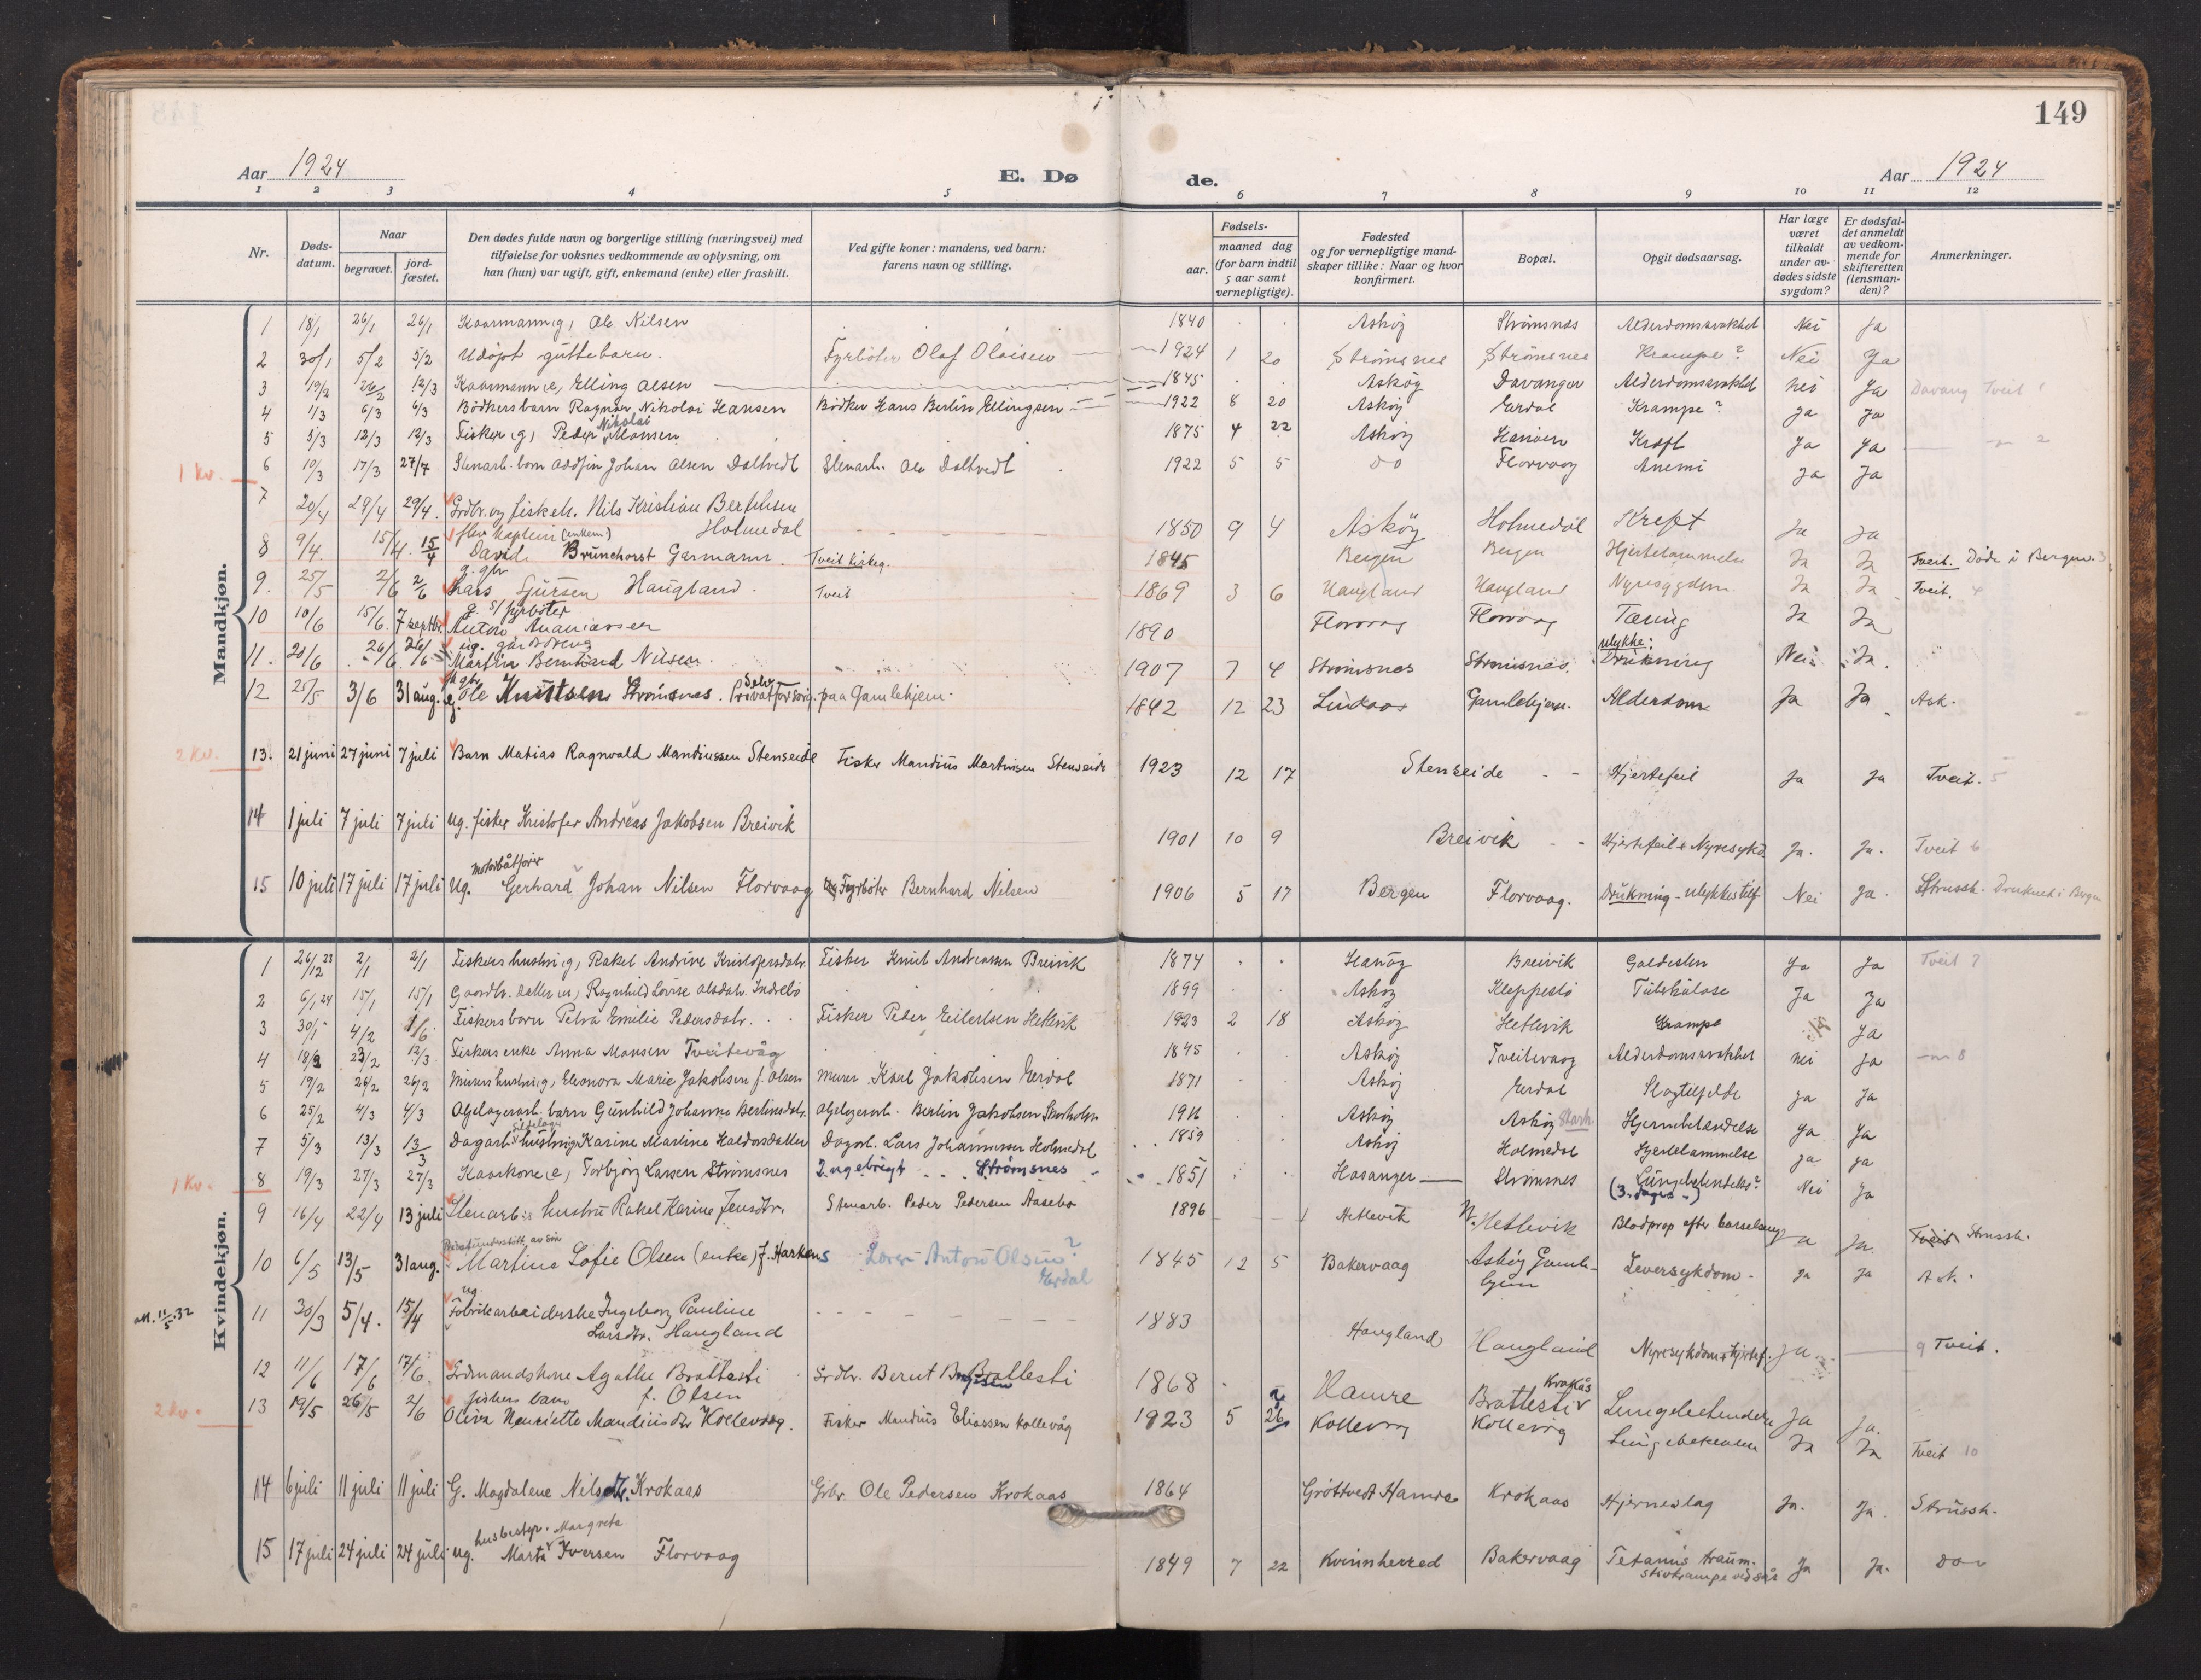 149
Aar 1924 E. Døde. Aar 1924
1 2 3 4 5 6 7 8 9 10 11 12
Nr. Døds-datum. Naar begravet. jord-fæstet. Den dødes fulde navn og borgerlige stilling (næringsvei) med tilføielse for voksnes vedkommende av oplysning, om han (hun) var ugift, gift, enkemand (enke) eller fraskilt. Ved gifte koner: mandens, ved barn: farens navn og stilling. Fødsels- aar. maaned dag (for barn indtil 5 aar samt vernepligtige). Fødested og for vernepligtige mandskaper tillike: Naar og hvor konfirmert. Bopæl. Opgit dødsaarsag. Har læge været tilkaldt under avdødes sidste sygdom? Er dødsfaldet anmeldt av vedkommende for skifteretten (lensmanden)? Anmerkninger.
Mandkjøn.
1 18/1 26/1 26/1 Kaarmann g, Ole Nilsen 1840 Askøy Strømsnes Alderdomssvakhet Nei Ja
2 30/1 5/2 5/2 Udøpt guttebarn. Fyrbøter Olaf Olaisen 1924 1 20 Strømsnes Strømsnes Krampe? Nei Ja
3 19/2 26/2 12/3 Kaarmann e, Elling Olsen 1845 Askøy Davanger Alderdomssvakhet nei Ja Davang Tveit 1
4 1/3 6/3 6/3 Bødkersbarn Ragnar Nikolai Hansen Bødker Hans Berlin Ellingsen 1922 8 20 Askøy Erdal Krampe? Ja Ja
5 5/3 12/3 12/3 Fisker g, Peder Nikolai Monsen 1875 4 22 Askøy Hanøen Kræft Ja Ja 2
1 Kv.
6 10/3 17/3 27/7 Stenarb. barn Oddfin Johan Olsen Daltvedt Stenarb. Ole Daltvedt 1922 5 5 Do Florvaag Anemi Ja Ja
7 20/4 29/4 29/4. Grdbr. og fiskeh. Nils Kristian Berthelsen Holmedal 1850 9 4 Askøy Holmedal Kreft Ja Ja
8 9/4. 15/4. 15/4 Kaptein (enkem) David Brunchorst Garmann. Tveit kirkeg. 1845 Bergen Bergen Hjertelammelse Ja Ja Tveit. Døde i Bergen. 3
9. 25/5 2/6 2/6 g. gbr Lars Sjursen Haugland. Tveit 1869 3 6 Haugland Haugland Nyresygdom Ja Ja Tveit. 4
10 10/6 15/6. 7 septbr. g. s/ fyrbøter Anton Ananiassen 1890 Florvag Florvag Tæring Ja Ja
11. 20/6 26/6. 26/6 ug. gårdsdreng Martin Berntard Nilsen. 1907 7 4 Strømsnes Strømsnes. ulykke: Drukning Nei Ja.
12 25/5 3/6 31 aug. Ole Knutsen Strømsnes. Selv Privatforsørg. paa Gamlehjem. 1842 12 23 Lindaas Gamlehjem. Alderdom Ja Ja Ask.
2 Kv.
13. 21 juni 27 juni 7 juli Barn Matias Ragnvald Mandiussen Stenseide Fisker Mandius Martinsen Stenseide 1923 12 17 Stenseide Hjertefeil Ja Ja Tveit. 5
14 1 juli 7 juli 7 juli Ug. fisker Kristofer Andreas Jakobsen Breivik 1901 10 9 Breivik Hjertefeil & Nyresykd. Ja. Ja. Tveit 6
15 10 juli 17 juli 17 juli Ug. Motorbåtfører Gerhard Johan Nilsen Florvaag Fyrbøter Bernhard Nilsen 1906 5 17 Bergen Florvaag. Drukning - ulykkestilf Nei Ja. Strussh. Druknet i Bergen
Kvindekjøn.
1 26/12 23 2/1 2/1 Fiskers hustru g, Rakel Andrine Kristofersdatr. Fisker Knut Andreassen Breivik 1874 Hanøy Breivik Galdesten Ja Ja Tveit 7
2 6/1 24 15/1 15/1 Gaardbr. datter ug, Ragnhild Lovise Olsdatr. Indrebø 1899 Askøy Kleppestø Tuberkulose Ja Ja
3 30/1 4/2 1/6 Fiskersbarn Petra Emilie Pedersdatr. Fisker Peder Eilertsen Hetlevik 1923 2 18 Askøy Hetlevik Krampe Ja
4 18/2 23/2 12/3 Fiskers enke Anna Monsen Tveitevåg 1845 Askøy Tveitevaag Alderdomssvakhet nei Ja 8
5 19/2 26/2 26/2 Murers hustru g, Eleonora Marie Jakobsen f. Olsen Murer Karl Jakobsen Erdal 1871 Askøy Erdal Slagtilfelde Ja Ja
6 25/2 4/3 4/3 Oljelagerarb. barn Gunhild Johanna Berlinsdatr. Oljelagerarb. Berlin Jakobsen Skarholm 1911 Askøy Askøy Skarh. Hjernebetændelse Ja Ja
7 5/3 13/3 13/3 Dagarb. hustru g, Karine Martine Haldorsdatter Dagarb. Lars Johannessen Holmedal 1859 Askøy Holmedal Hjertelammelse Ja Ja
1 Kv.
8 19/3 27/3 27/3 Kaarkone e, Torbjørg Larsen Strømsnes Ingebrigt Strømsnes 1851 Hosanger Strømsnes Lungebetændelse? (3. dagen) Nei Ja
9 16/4 22/4 13 juli Stenarb:s hustru Rakel Karine Jensdtr. Stenarb. Peder Pedersen Aasebø 1896 Hetlevik N. Hetlevik Blodprop efter barselseng Ja Ja. Tveit Strussh.
10 6/5 13/5 31 aug. Privatunderstøtt. av søn Martine Sofie Olsen (enke) f. Harkens Anton Olsen? Erdal 1845 12 5 Bakervaag Askøy Gamlehjem Leversykdom. Ja Ja Ask.
att. 11/5. 32
11 30/3 5/4. 15/4 ug. Fabrikarbeiderske Ingeborg Pauline Larsdtr. Haugland 1883 Haugland Haugland Nyresykdom & hjertef. Ja. 9 Tveit.
12 11/6 17/6 17/6. Grdmandskone Agathe Brattesti f. Olsen Grdbr. Bernt Brattesti 1868 Hamre Krokås Brattesti Lungebetendelse Ja Ja.
2 Kv.
13 19/5 26/5 2/6 fiskers barn Oliva Henriette Mandiusdtr Kollevaag. Fisker Mandius Eliassen Kollevåg 1923 5 26 Kollevag Kollevåg Lungebetendelse Ja Ja Tveit 10
14 6 juli 11 juli 11 juli G. Magdalene Nilsdtr. Krokaas Grbr. Ole Pedersen Krokaas 1864 Grøttvedt Hamre Krokaas Hjerneslag Ja. Ja. Strussh.
15 17 juli 24 juli 24 juli ug. husbestyr. Marta Margrete Iversen Florvaag 1849 7 22 Kvinnherred Bakervaag Tetanus traum. stivkrampe ved sår Ja Ja. Do